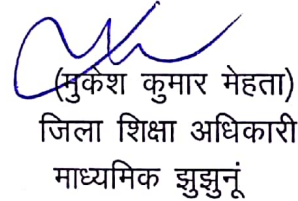 (मुकेश कुमार मेहता)
जिला शिक्षा अधिकारी
माध्यमिक झुझुनूं